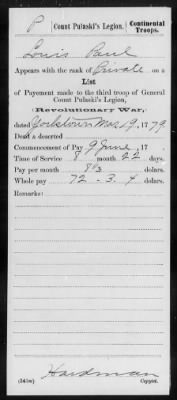 P
Count Pulaski's Legion.
Continental
Troops.
Louis Paul
Appears with the rank of Private on a
List
of Payement made to the third troop of General
Count Pulaski's Legion,
Revolutionary War,
dated Yorktown Mar. 19, 1779
Dead a deserted
Commencement of Pay 9 June, 17
Time of Service 8 month 22 days.
Pay per month 8 1/3 dolars.
Whole pay 72 - 3. 4 dolars.
Remarks:
Hardman
Copyer.